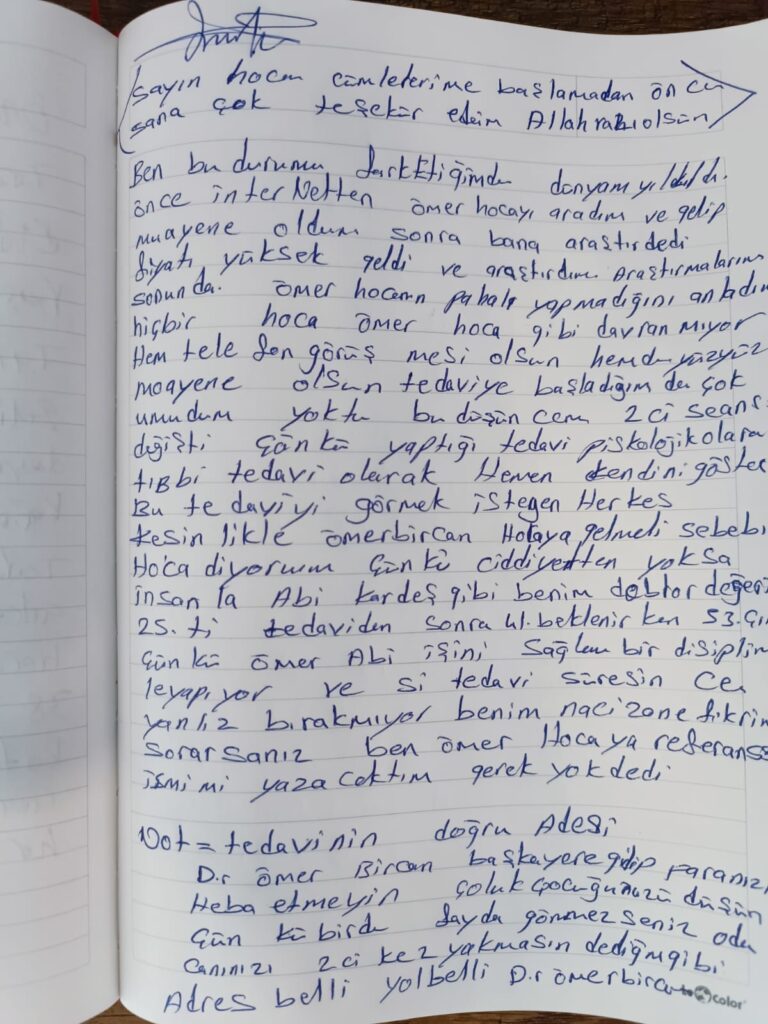 (Sayın hocam cümlelerime başlamadan önce
sana çok teşekür ederim Allah razı olsun)
Ben bu durumu farkEtiğimde dünyam yıkıldı.
önce interNetten ömer hocayı aradım ve gelip
muayene oldum sonra bana araştır dedi
fiyatı yüksek geldi ve araştırdım Araştırmalarım
sonunda. ömer hocamın pahalı yapmadığını anladım
hiçbir hoca ömer hoca gibi davranmıyor
Hem tele fon görüş mesi olsun hemde yüzyüz
moayene olsun tedaviye başladığım da çok
umudum yoktu bu düşün cem 2 ci seans
değişti çünkü yaptığı tedavi piskolojik olara
tıBbi tedavi olarak Hemen kendini göster
Bu te daviyi görmek isteyen Herkes
kesin likle ömerbircan Hocaya gelmeli sebebi
Hoca diyorum çünkü ciddiyetten yoksa
insan la Abi kardeş gibi benim doktor değeri
25. ti tedaviden sonra 41. beklenir ken 53. çı
çünkü ömer Abi işini sağlam bir disiplin
le yapıyor ve si tedavi süresin ce
yanlız bırakmıyor benim naci zane fikrim
sorarsanız ben ömer Hoca ya referans
ismi mi yaza caktım gerek yok dedi
Not = tedavinin doğru Adesi
D.r ömer Bircan başka yere gidip paranızı
Heba etmeyin çoluk çocuğunuzu düşün
çün kü birde fayda görmez seniz oda
canınızı 2 ci kez yakmasın dediğm gibi
Adres belli yol belli D.r ömerbircan
color